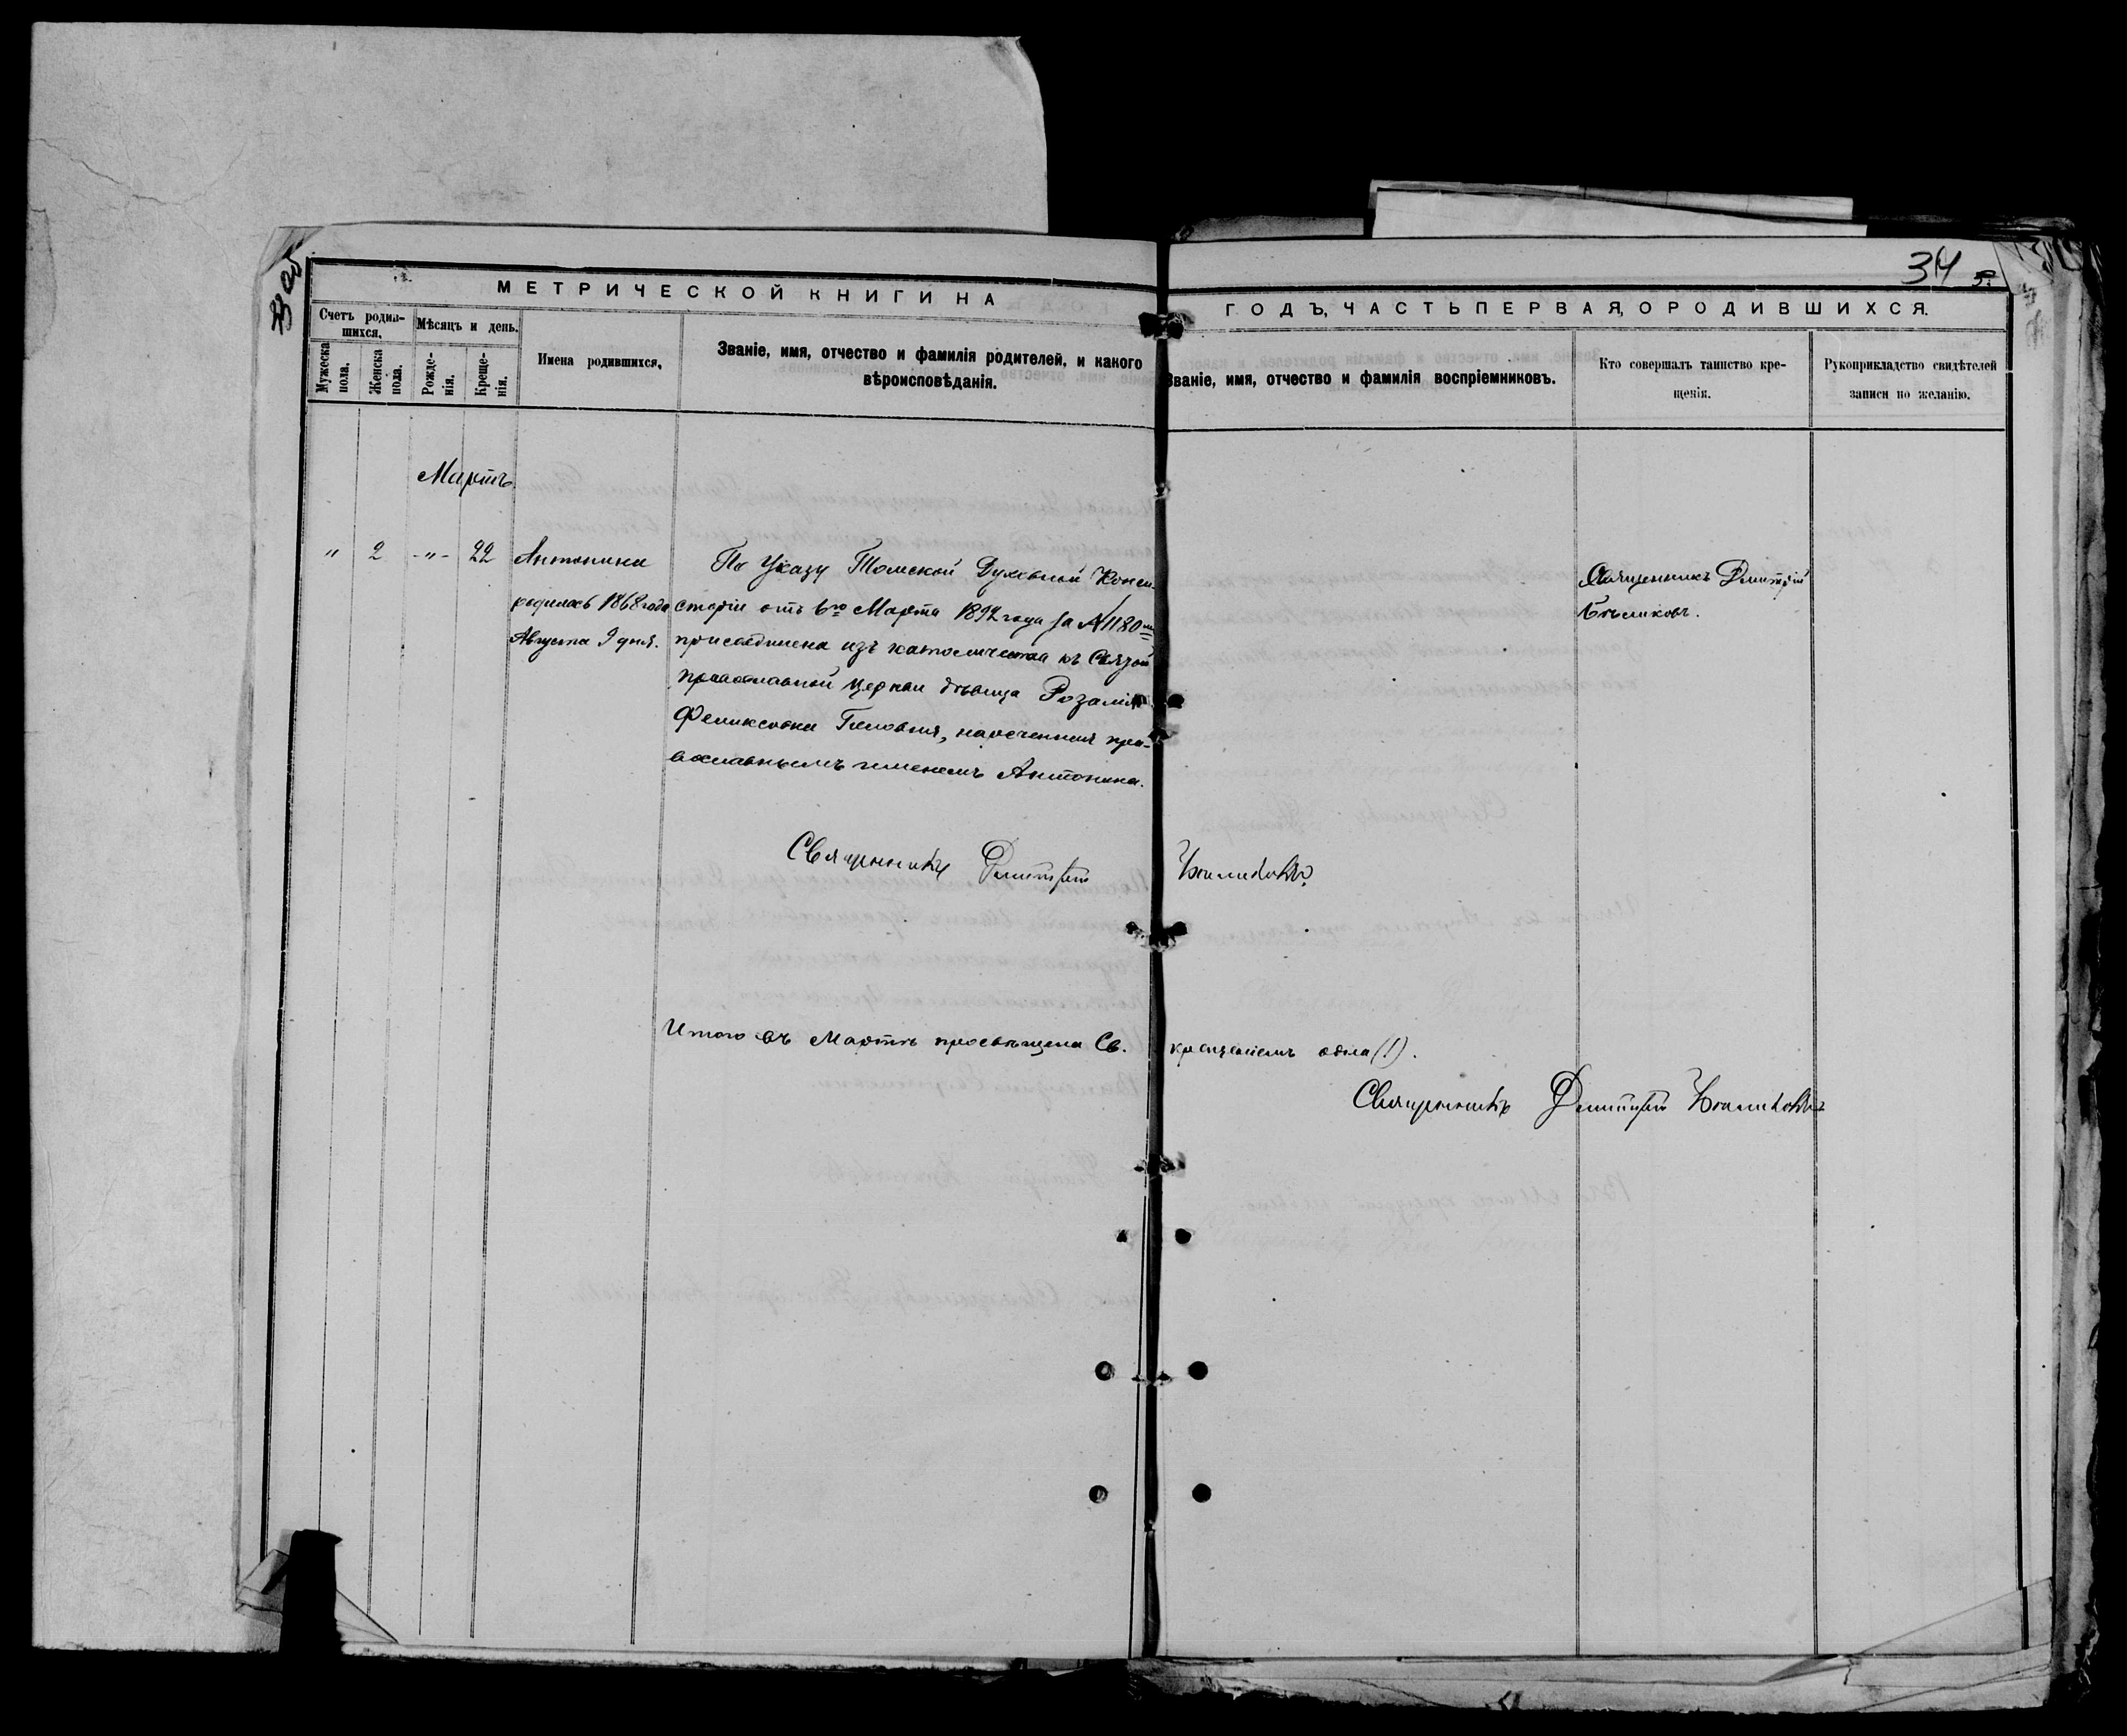 34
МЕТРИЧЕСКОЙ КНИГИ НА
ГОДЪ, ЧАСТЬ ПЕРВАЯ, О РОДИВШИХСЯ.
Счетъ родив-
шихся.
Мужеска пола.
Женска пола.
Мѣсяцъ и день.
Рожде-
нія.
Креще-
нія.
Имена родившихся.
Званіе, имя, отчество и фамилія родителей, и какого
вѣроисповѣданія.
Званіе, имя, отчество и фамилія воспріемниковъ.
Кто совершалъ таинство кре-
щенія.
Рукоприкладство свидѣтелей
записи по желанію.
Мартъ.
" 2 -"- 22
Антонина
родилась 1868 года
Августа 9 дня.
По Указу Томской Духовной Конси-
сторіи отъ 6го Марта 1892 года за № 1180мъ
присоединена изъ католичества къ Святой
православной церкви дѣвица Розалія
Феликсовна, нареченная пра-
вославнымъ именемъ Антонина.
Священникъ Димитрій
Бѣликовъ.
Священникъ Димитрій Бѣликовъ
Итого въ Мартѣ просвѣщена Св. крещеніемъ одна (1).
Священникъ Димитрій Бѣликовъ